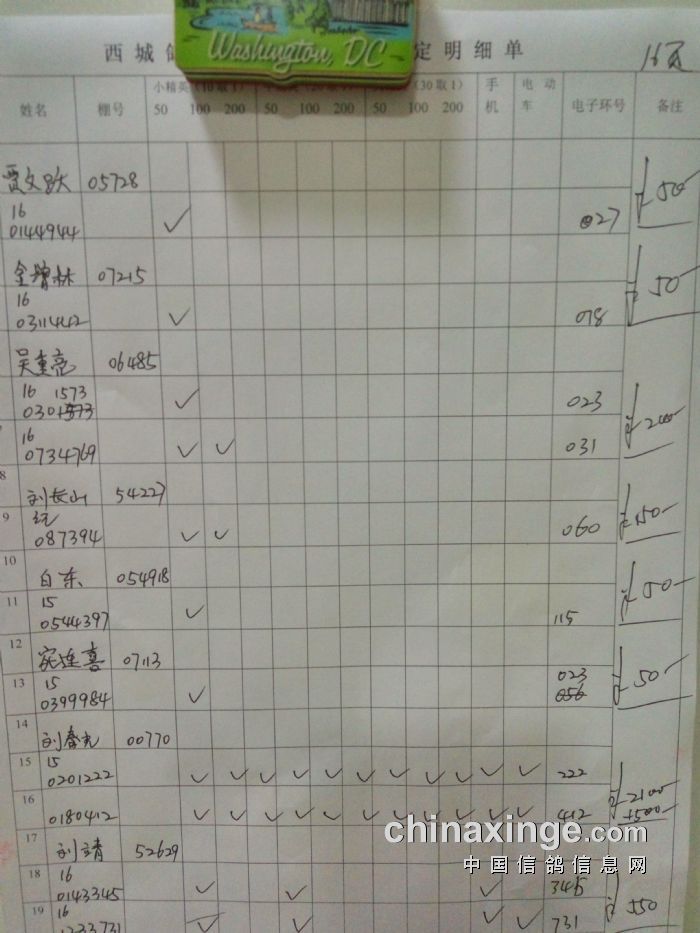 Washington, DC
西城 定明细单
16页
姓名 棚号 小精英(10取1) (30取1) 手机 电动车 电子环号 备注
50 100 200 50 100 200 50 100 200
05728 50
16
0144944 ✓ 027
金增林 07215 50
16
0311442 ✓ 018
06485
16 1573
✓ 023
200
16
0734769 ✓ ✓ 031
8 刘长山 54227
9
087394 ✓ ✓ 060 150
10 白东 054918 50
11 15
0544397 ✓ 115
12 07113
023
50
13 15
0399984 ✓ 056
14 00770
15 15
0201222 ✓ ✓ ✓ ✓ ✓ ✓ ✓ ✓ ✓ ✓ ✓ 222
2100
16 0180412 ✓ ✓ ✓ ✓ ✓ ✓ ✓ ✓ ✓ ✓ ✓ 412
+500
17 刘靖 52629
chinaxinge.com
中国信鸽信息网
18 16
0143345 ✓ ✓ ✓ 345
550
19 16
1233731 ✓ ✓ ✓ ✓ 731